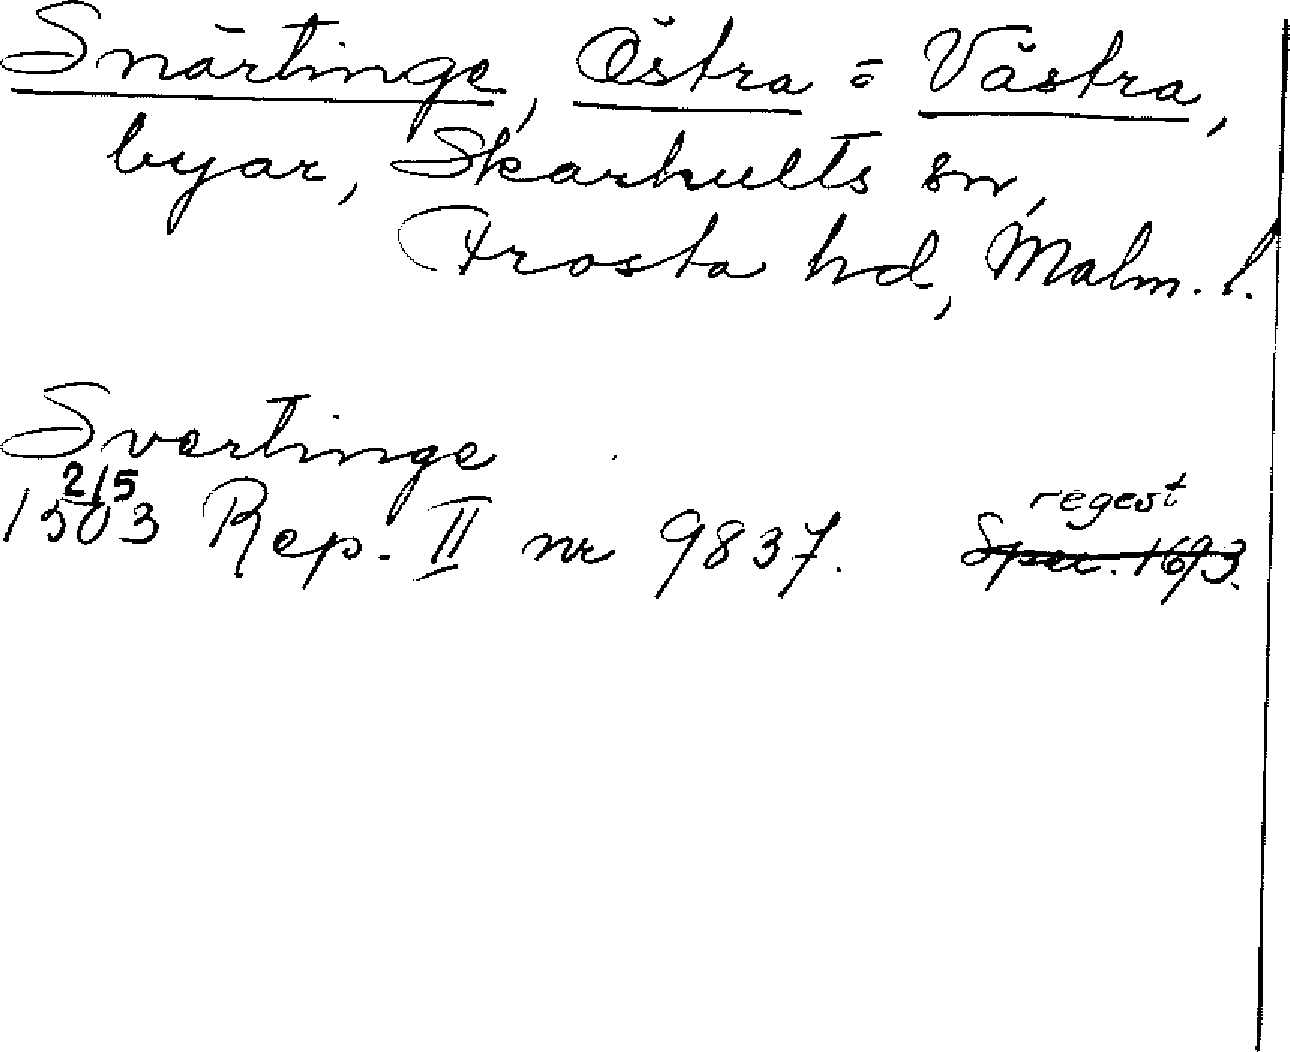 Snärtinge, Östra o Västra,
byar, Skarhults sn,
Frosta hd, Malm. l.
Svertinge
2/5
1503 Rep. II nr 9837.
regest
Spec. 1693.